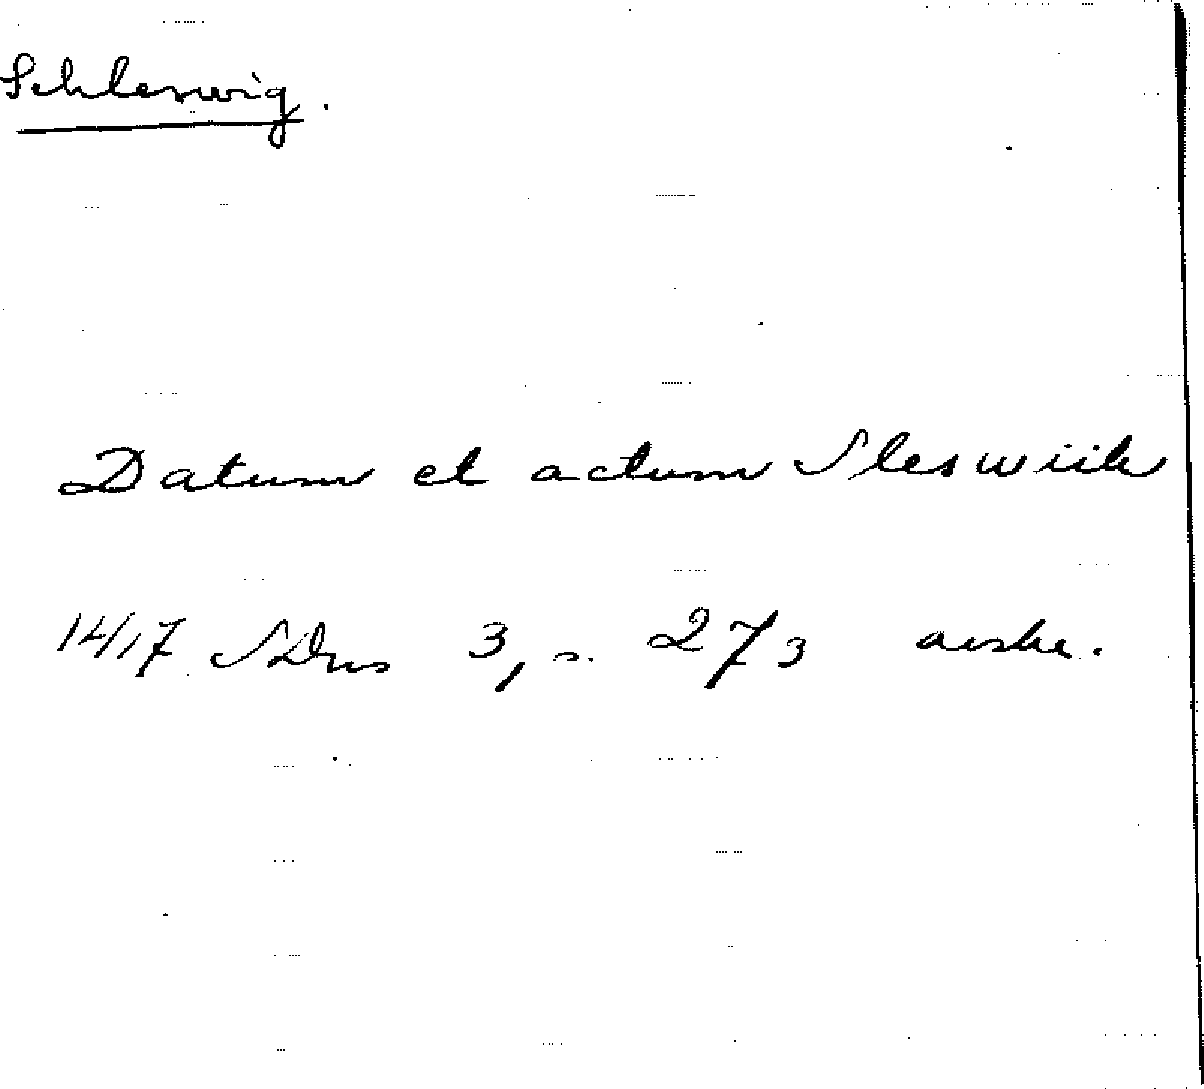 Schleswig.
Datum et actum Sleswiik
1417 SDns 3, s. 273 avskr.